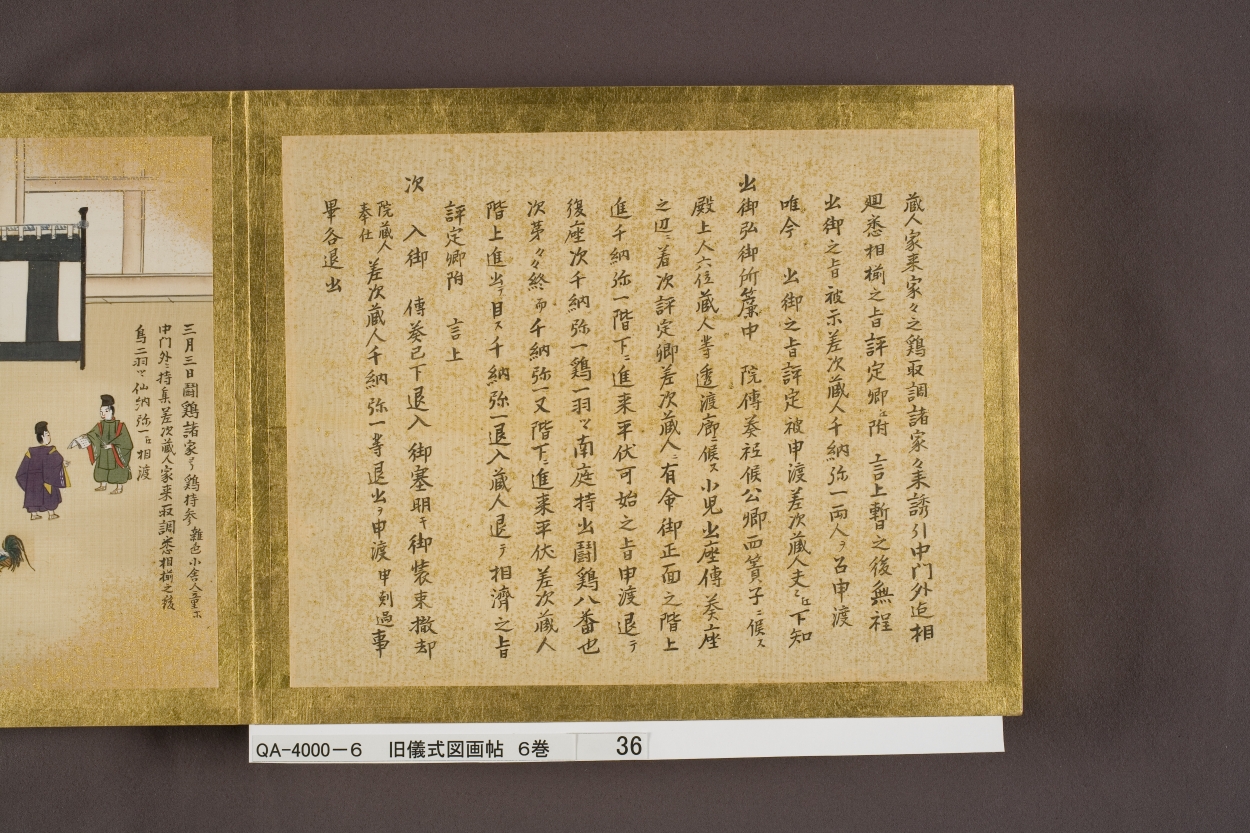 蔵人家来家々之鶏取調諸家々来誘引中門外迄相
廻悉相揃之旨評定卿江附　言上暫之後無程
出御之旨被示差次蔵人千納弥一両人ヲ召申渡
唯今　出御之旨評定被申渡差次蔵人夫々江下知
出御弘御所簾中　院傳奏祗候公卿西簀子ニ候ス
殿上人六位蔵人等透渡廊ニ候ス小児出座傳奏座
之辺ニ着次評定卿差次蔵人ニ有命御正面之階上
進千納弥一階下ニ進来平伏可始之旨申渡退テ
復座次千納弥一鶏一羽ツヽ南庭持出闘鶏八番也
次第々々終而千納弥一又階下ニ進来平伏差次蔵人
階上進出テ目ス千納弥一退入蔵人退テ相濟之旨
評定卿附　言上
次　入御　傳奏已下退入御塞明キ御装束撤却
院蔵人奉仕　差次蔵人千納弥一等退出ヲ申渡申刻過事
畢各退出
三月三日闘鶏諸家ヨリ鶏持参雜色小舎人童等
中门外ニ持集差次蔵人家来取調悉相揃之後
鳥二羽ツヽ仙納弥一江相渡
QA-4000-6　旧儀式図画帖　6巻　36